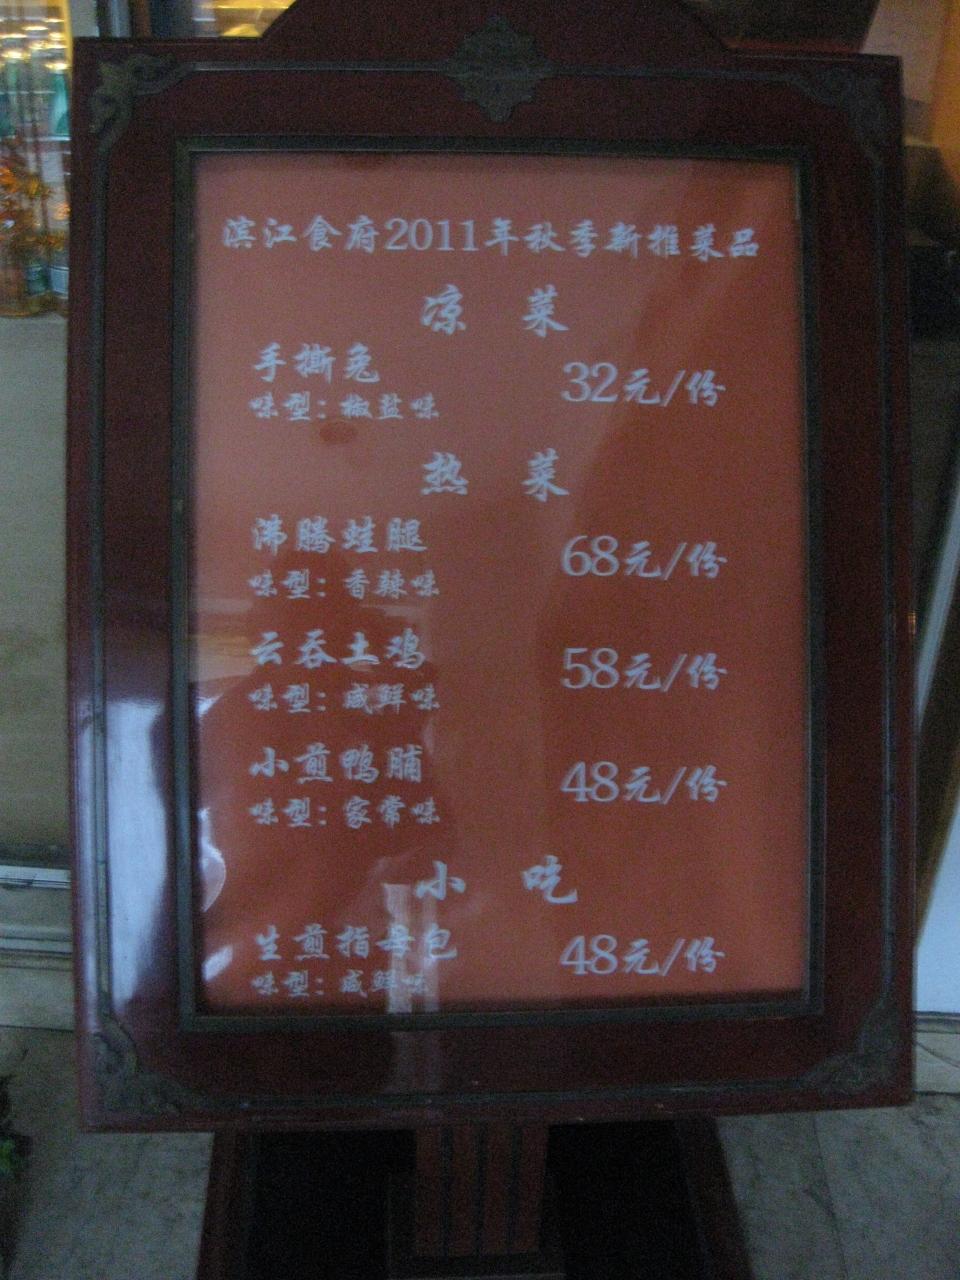 滨江食府2011年秋季新推菜品
凉 菜
手撕兔 32元/份
味型：椒盐味
热 菜
沸腾蛙腿 68元/份
味型：香辣味
云吞土鸡 58元/份
味型：咸鲜味
小煎鸭脯 48元/份
味型：家常味
小 吃
生煎指母包 48元/份
味型：咸鲜味